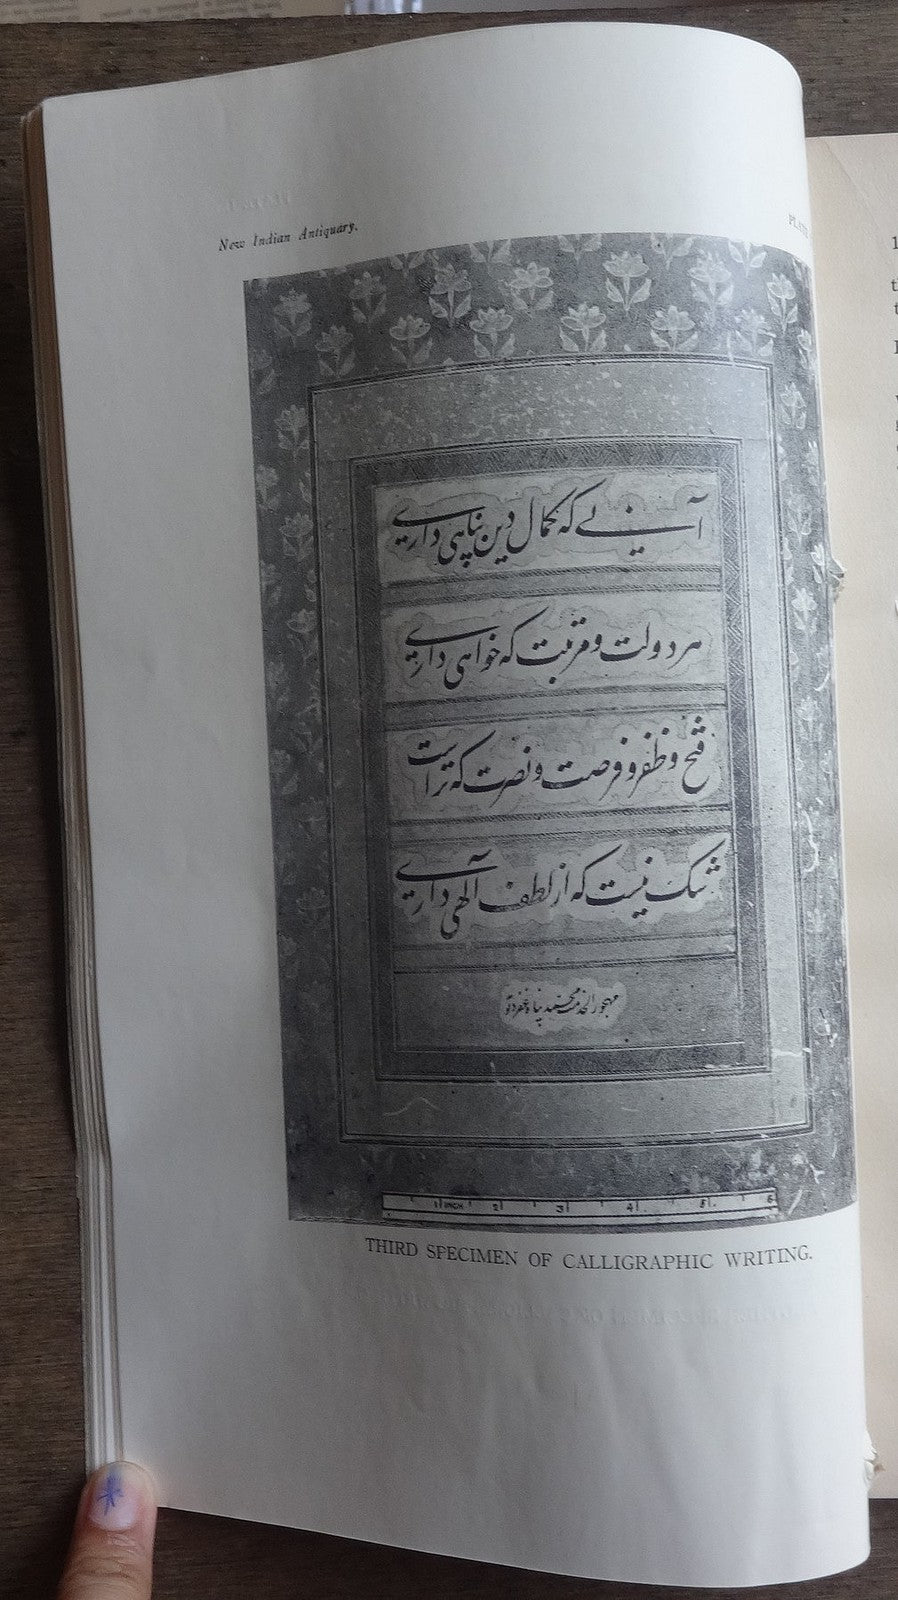 New Indian Antiquary.
PLATE
آنی که بکمال دین پناهی داری
هر دولت و مرتبت که خواهی داری
فتح و ظفر و فرصت و نصرت که تراست
شک نیست که از لطف آلهی داری
مهجور الخدمت محمد پناه
1 INCH 2 3 4 5 6
THIRD SPECIMEN OF CALLIGRAPHIC WRITING.